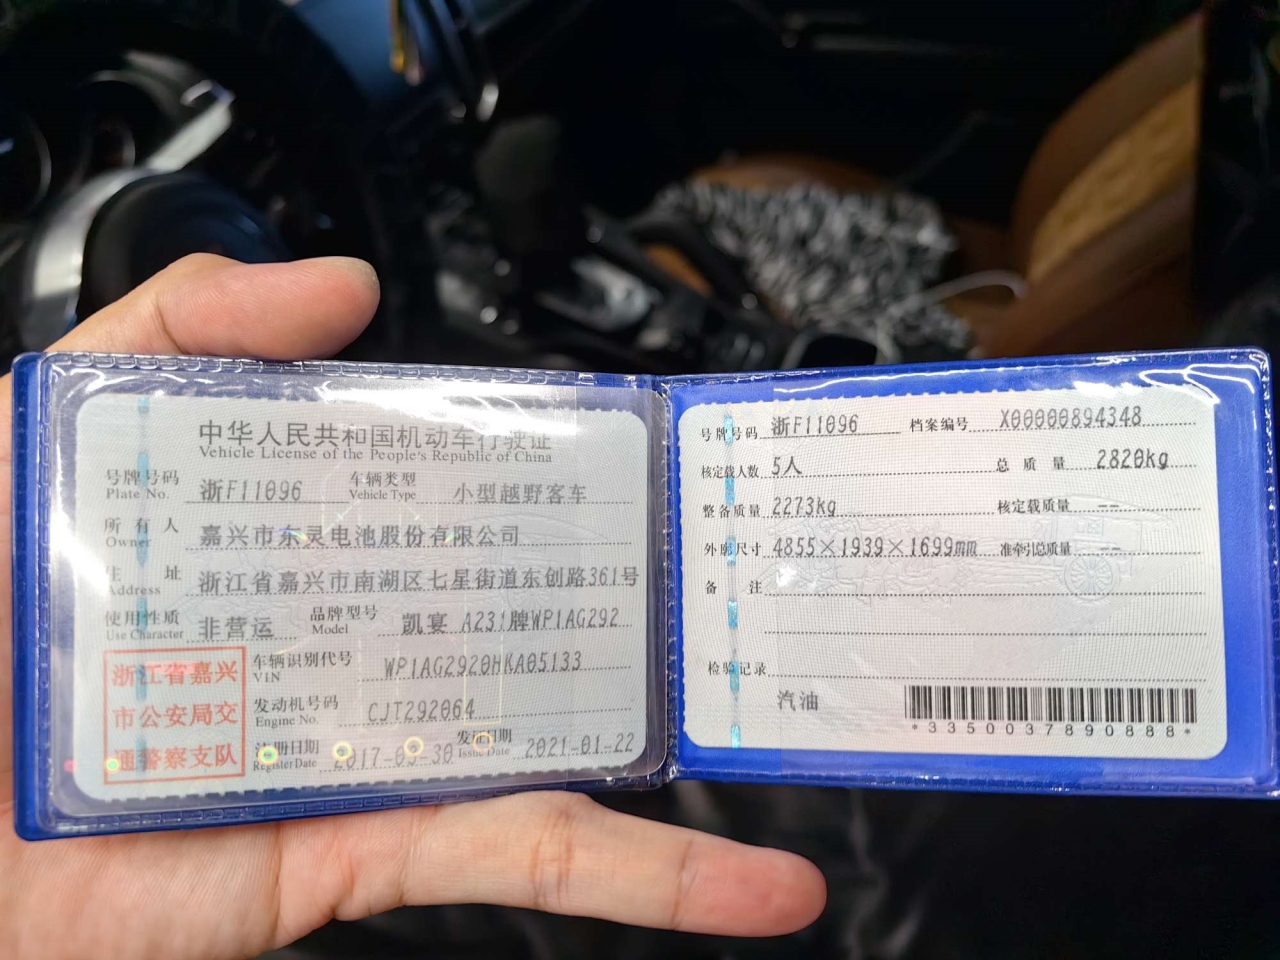 中华人民共和国机动车行驶证
Vehicle License of the People's Republic of China
号牌号码 浙F11096 车辆类型 小型越野客车
Plate No. Vehicle Type
所有人 嘉兴市东灵电池股份有限公司
Owner
住址 浙江省嘉兴市南湖区七星街道东创路361号
Address
使用性质 非营运 品牌型号 凯宴 A231牌WP1AG292
Use Character Model
浙江省嘉兴
市公安局交
通警察支队
车辆识别代号 WP1AG2920HKA05133
VIN
发动机号码 CJT292064
Engine No.
注册日期 2017-03-30 发证日期 2021-01-22
Register Date Issue Date
号牌号码 浙F11096 档案编号 X00000894348
核定载人数 5人 总质量 2820kg
整备质量 2273kg 核定载质量 --
外廓尺寸 4855×1939×1699mm 准牵引总质量 --
备注
检验记录
汽油
*3350037890888*